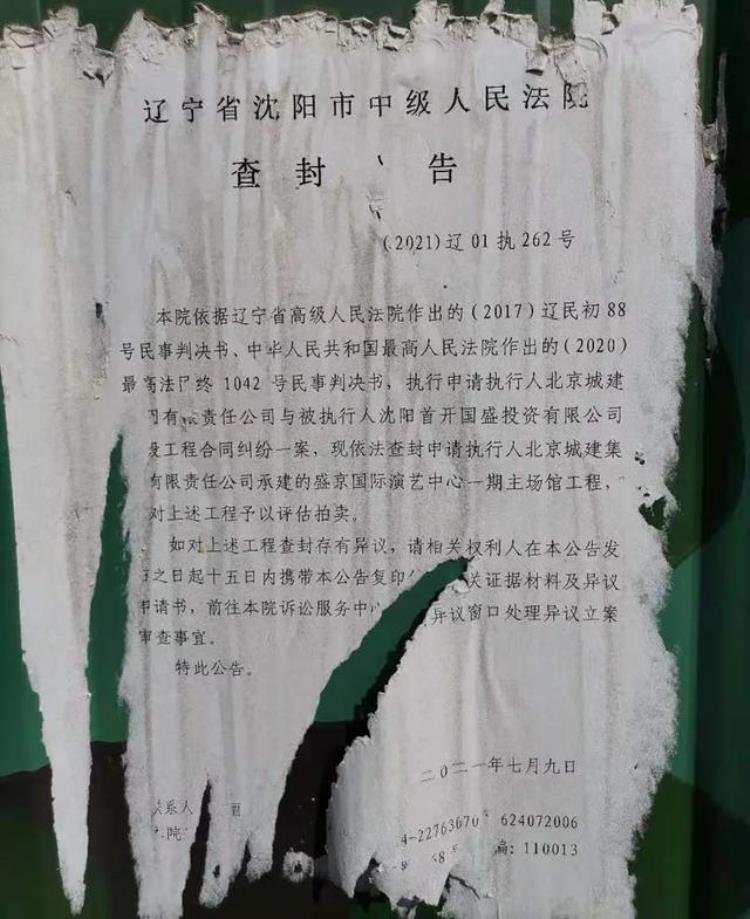 辽宁省沈阳市中级人民法院
查封 告
(2021)辽01执262号
本院依据辽宁省高级人民法院作出的(2017)辽民初88
号民事判决书、中华人民共和国最高人民法院作出的(2020)
最高法民终1042号民事判决书,执行申请执行人北京城建
有限责任公司与被执行人沈阳首开国盛投资有限公司
设工程合同纠纷一案,现依法查封申请执行人北京城建集
有限责任公司承建的盛京国际演艺中心一期主场馆工程,
对上述工程予以评估拍卖。
如对上述工程查封存有异议,请相关权利人在本公告发
之日起十五日内携带本公告复印 关证据材料及异议
申请书,前往本院诉讼服务中 异议窗口处理异议立案
审查事宜。
特此公告。
二〇二一年七月九日
联系人
院
4-22763670 624072006
编:110013